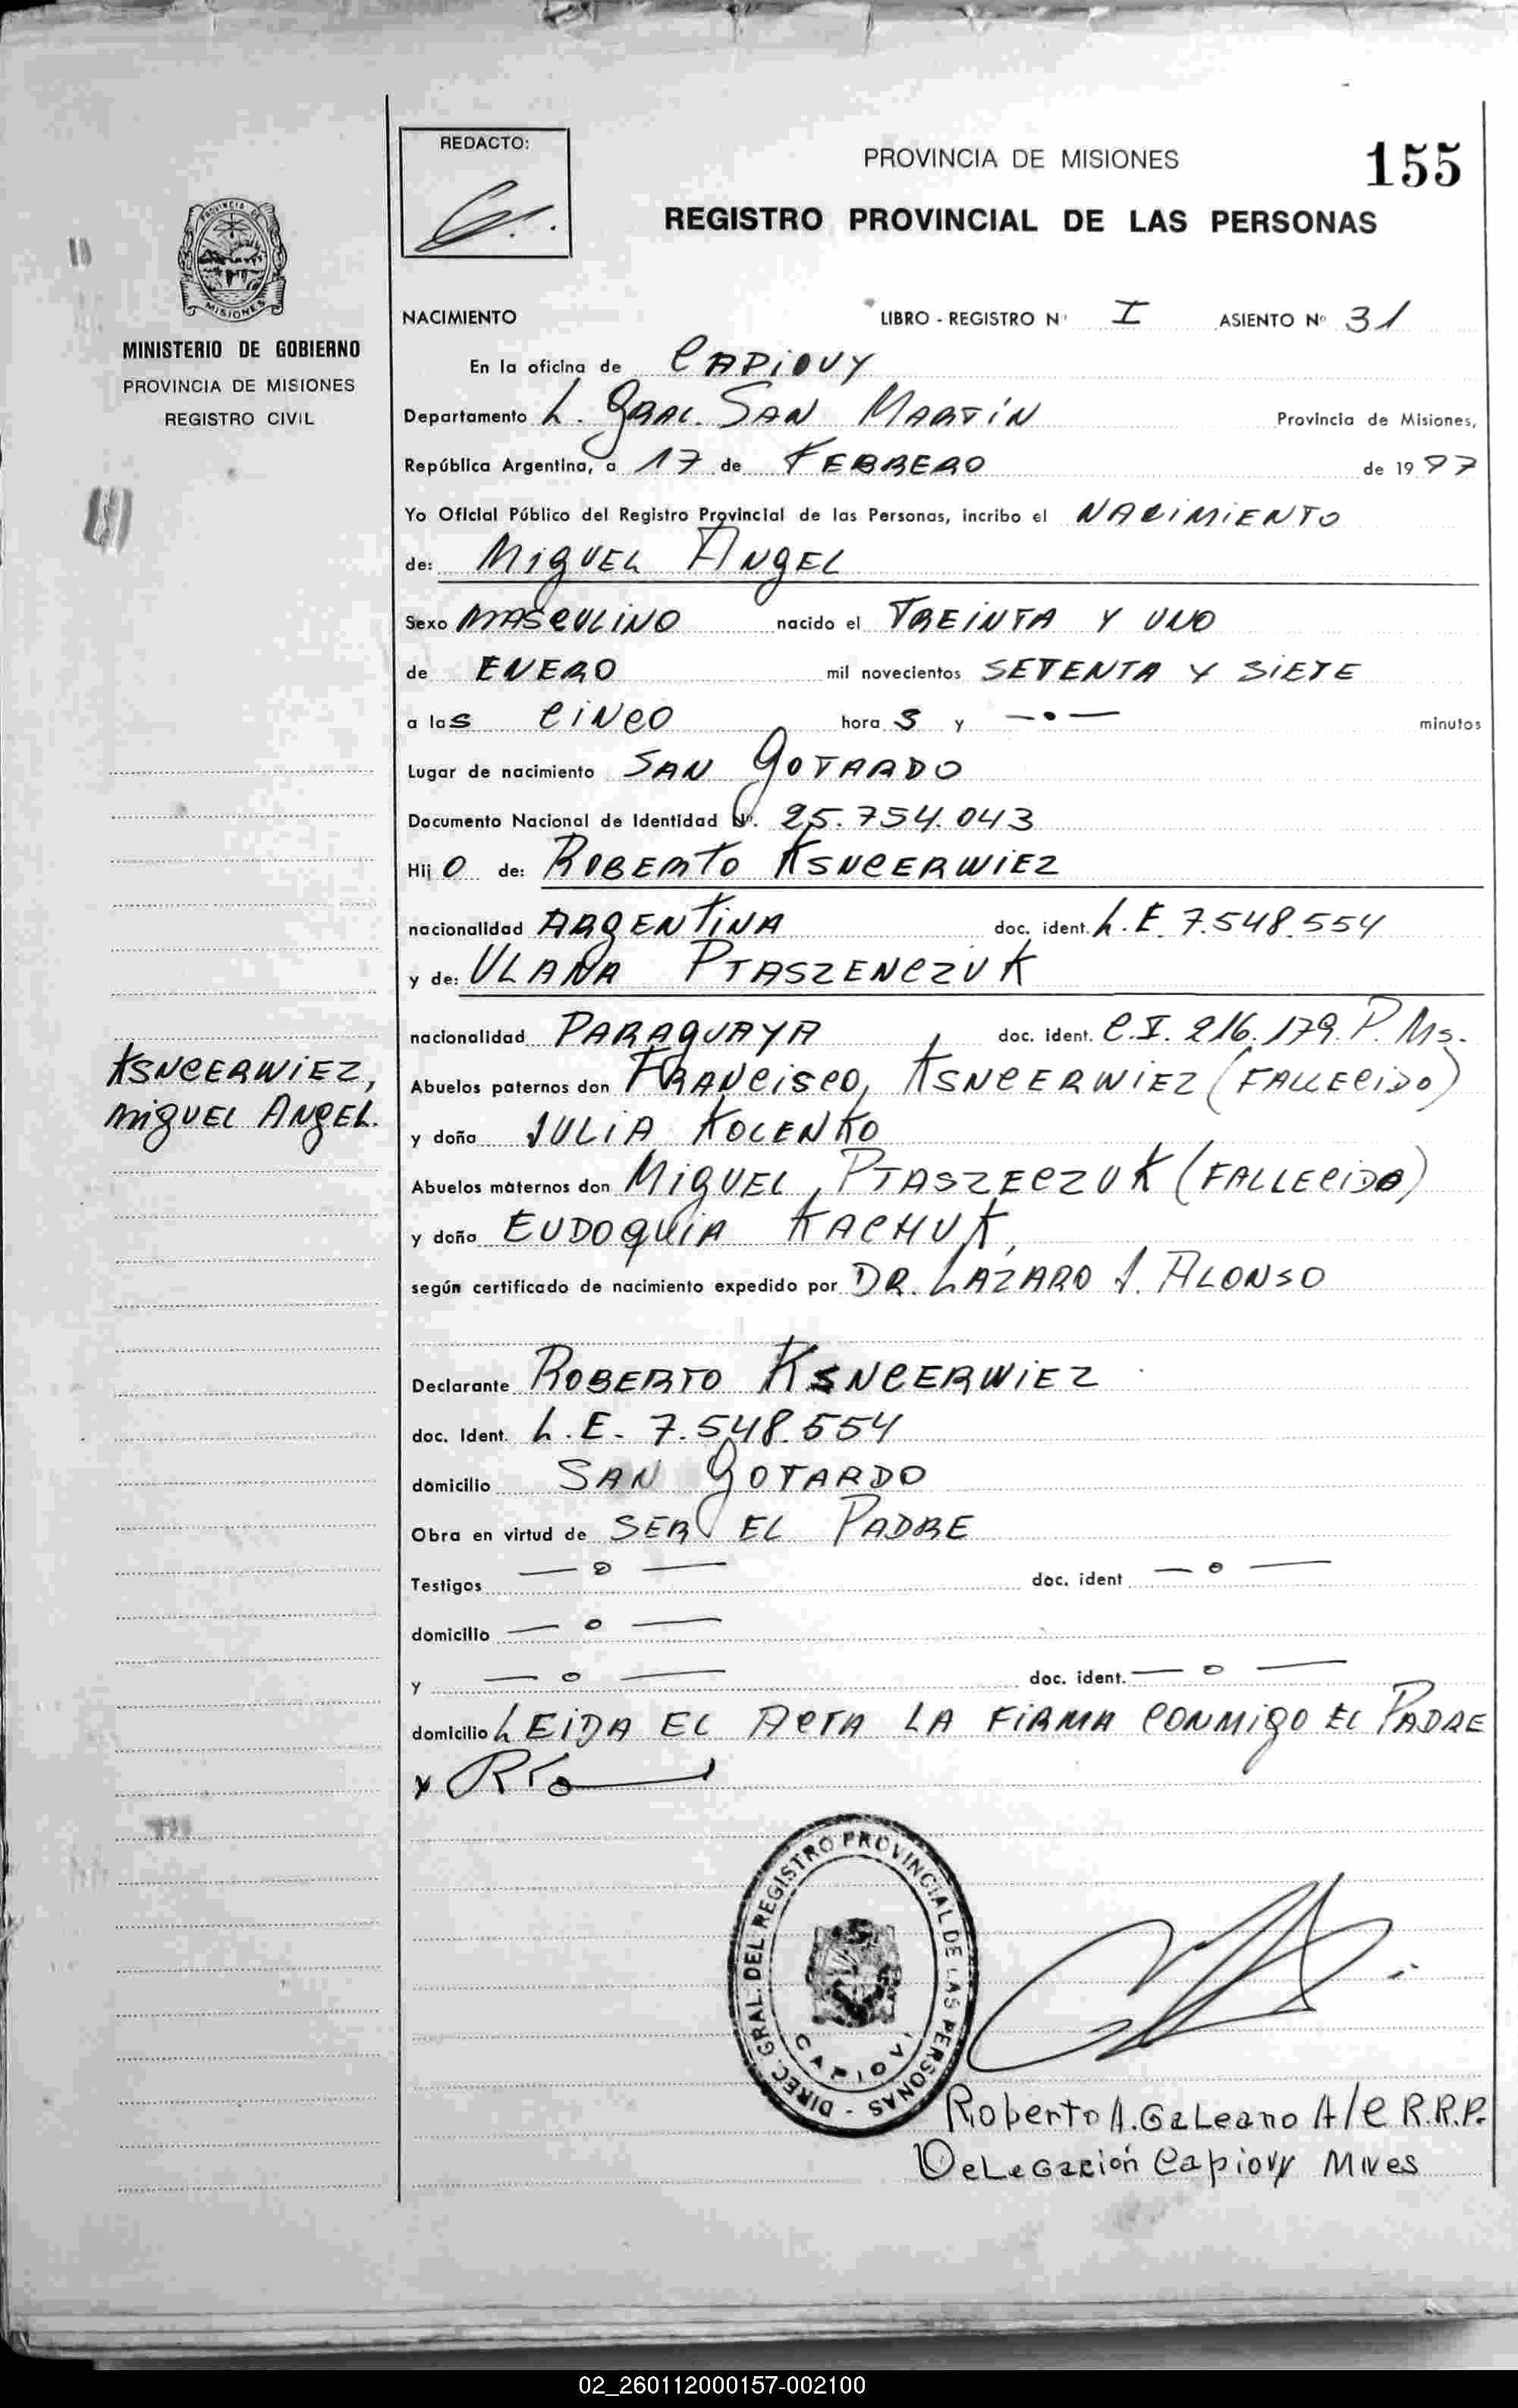 REDACTO:
PROVINCIA DE MISIONES
155
REGISTRO PROVINCIAL DE LAS PERSONAS
PROVINCIA DE MISIONES
MINISTERIO DE GOBIERNO
PROVINCIA DE MISIONES
REGISTRO CIVIL
NACIMIENTO LIBRO - REGISTRO Nº I ASIENTO Nº 31
En la oficina de CAPIOVY
Departamento L. GRAL. SAN MARTÍN Provincia de Misiones,
República Argentina, a 17 de FEBRERO de 1977
Yo Oficial Público del Registro Provincial de las Personas, incribo el NACIMIENTO
de: MIGUEL ANGEL
Sexo MASCULINO nacido el TREINTA Y UNO
de ENERO mil novecientos SETENTA Y SIETE
a las CINCO hora S y —•— minutos
Lugar de nacimiento SAN GOTARDO
Documento Nacional de Identidad Nº. 25.754.043
Hij O de: ROBERTO KSNCERWIEZ
nacionalidad ARGENTINA doc. ident. L.E. 7.548.554
y de: ULANA PTASZENCZUK
nacionalidad PARAGUAYA doc. ident. C.I. 216.179. P. Ms.
KSNCERWIEZ,
MIGUEL ANGEL.
Abuelos paternos don FRANCISCO, KSNCERWIEZ (FALLECIDO)
y doña JULIA KOLENKO
Abuelos maternos don MIGUEL, PTASZECZUK (FALLECIDO)
y doña EUDOQUIA KACHUK,
según certificado de nacimiento expedido por DR. LAZARO J. ALONSO
Declarante ROBERTO KSNCERWIEZ
doc. Ident. L.E. 7.548.554
domicilio SAN GOTARDO
Obra en virtud de SER EL PADRE
Testigos — o — doc. ident — o —
domicilio — o —
y — o — doc. ident. — o —
domicilio LEIDA EL ACTA LA FIRMA CONMIGO EL PADRE
DIREC. GRAL. DEL REGISTRO PROVINCIAL DE LAS PERSONAS -
CAPIOVI
Roberto A. Galeano A/C R.R.P.
Delegación Capiovy Mnes
02_260112000157-002100